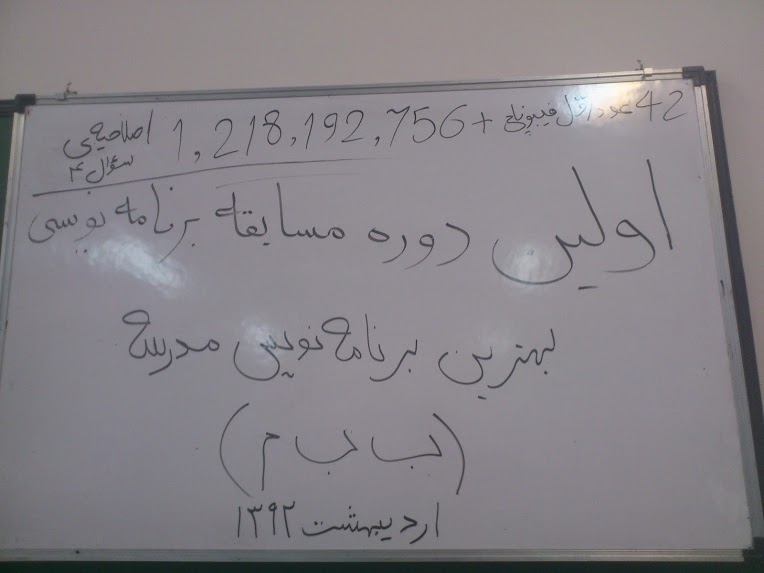 42 عدد اول فیبوناچی + 1,218,192,756
اصلاحیه‌ی سؤال ۴
اولین دوره مسابقه برنامه نویسی
بهترین برنامه نویس مدرسه
(ب ب م)
اردیبهشت ۱۳۹۲